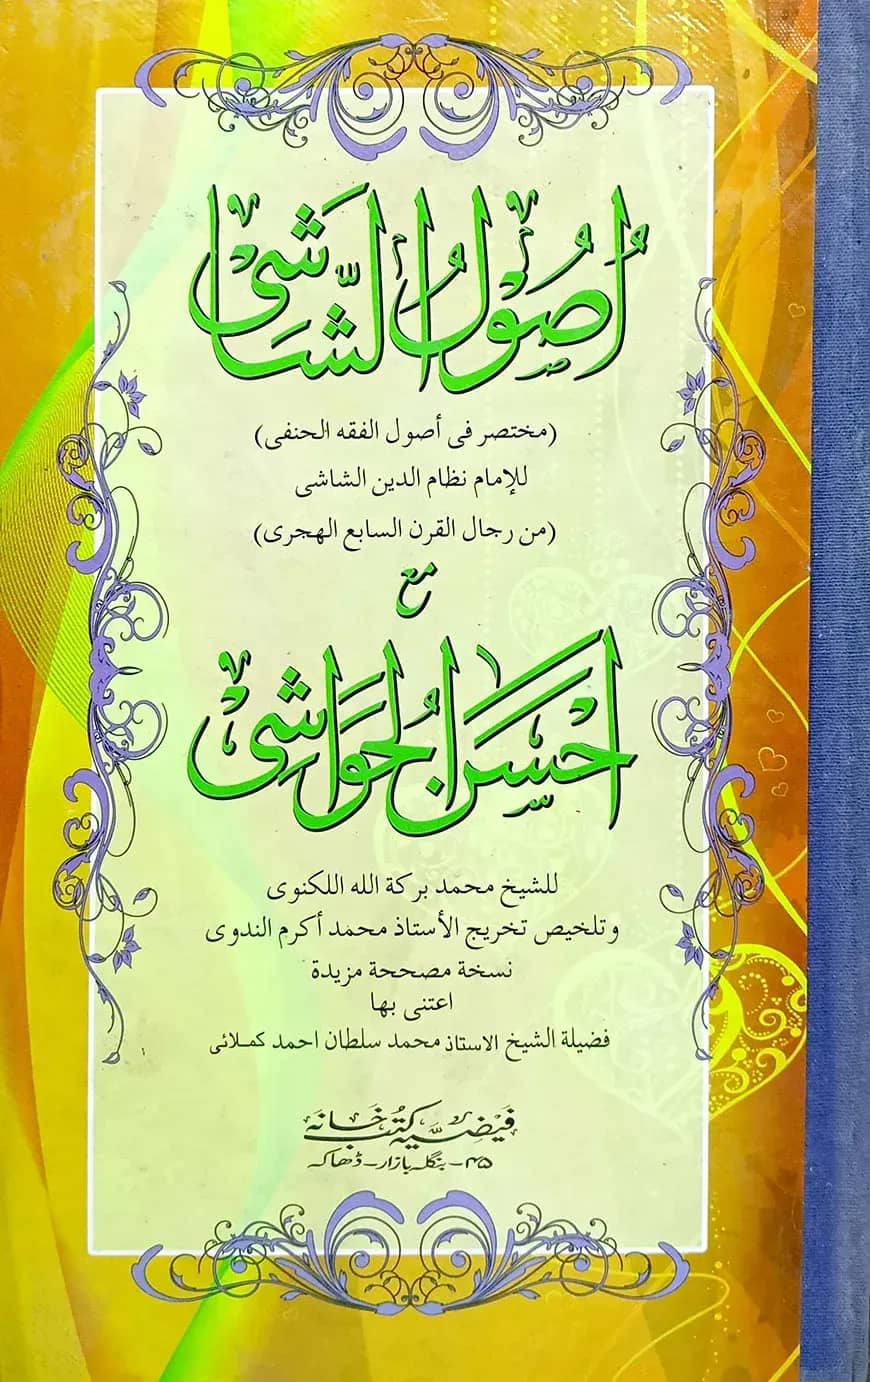 أُصُوْلُ الشَّاشِی
(مختصر فى أصول الفقه الحنفى)
للإمام نظام الدين الشاشى
(من رجال القرن السابع الهجرى)
مع
اَحْسَنُ الْحَوَاشِی
للشيخ محمد بركة الله اللكنوى
وتلخيص تخريج الأستاذ محمد أكرم الندوى
نسخة مصححة مزيدة
اعتنى بها
فضيلة الشيخ الاستاذ محمد سلطان احمد كملائى
فیضیہ کتب خانہ
۴۵- بنگلہ بازار- ڈھاکہ